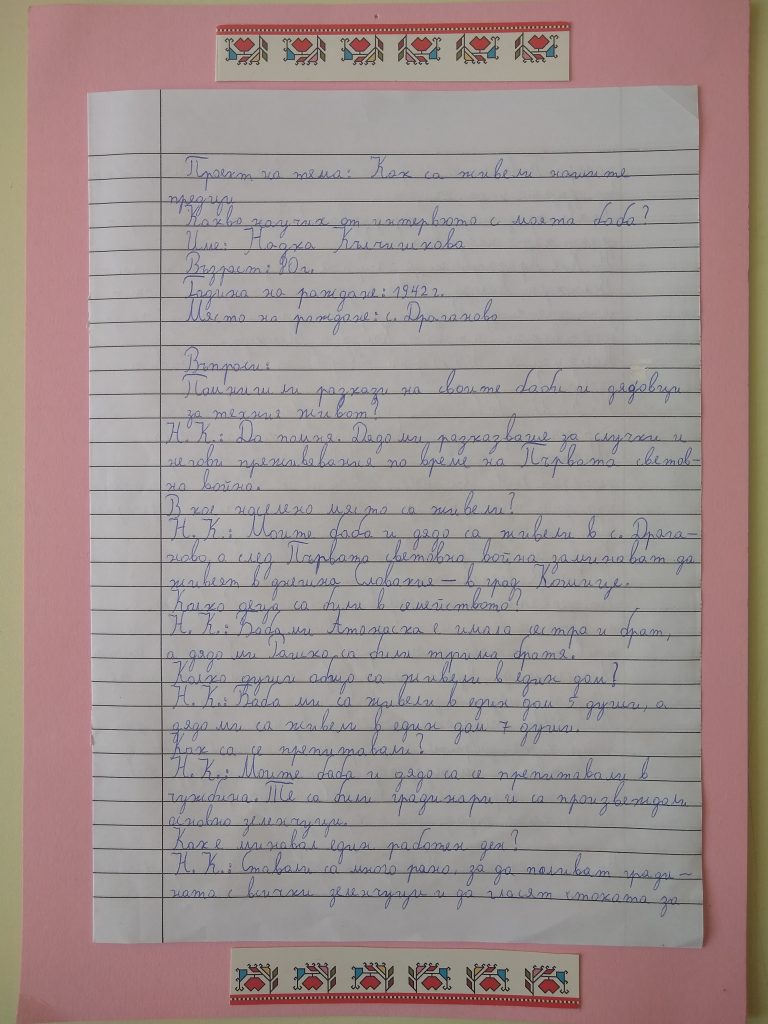 Проект на тема: Как са живели нашите
предци
Какво научих от интервюто с моята баба?
Име: Надка Кълчишкова
Възраст: 80г.
Година на раждане: 1942г.
Място на раждане: с. Драганово
Въпроси:
Помниш ли разкази на своите баби и дядовци
за техния живот?
Н. К.: Да помня. Дядо ми разказваше за случки и
негови преживявания по време на Първата светов-
на война.
В кое населено място са живели?
Н. К.: Моите баба и дядо са живели в с. Драга-
ново, а след Първата световна война заминават да
живеят в днешна Словакия – в град Кошице.
Колко деца са били в семейството?
Н. К.: Баба ми Атанаска е имала сестра и брат,
а дядо ми Райко са били трима братя.
Колко души общо са живели в един дом?
Н. К.: Баба ми са живели в един дом 5 души, а
дядо ми са живели в един дом 7 души.
Как са се препитавали?
Н. К.: Моите баба и дядо са се препитавали в
чужбина. Те са били градинари и са произвеждали
основно зеленчуци.
Как е минавал един работен ден?
Н. К.: Ставали са много рано, за да поливат гради-
ната с всички зеленчуци и да гласят стоката за